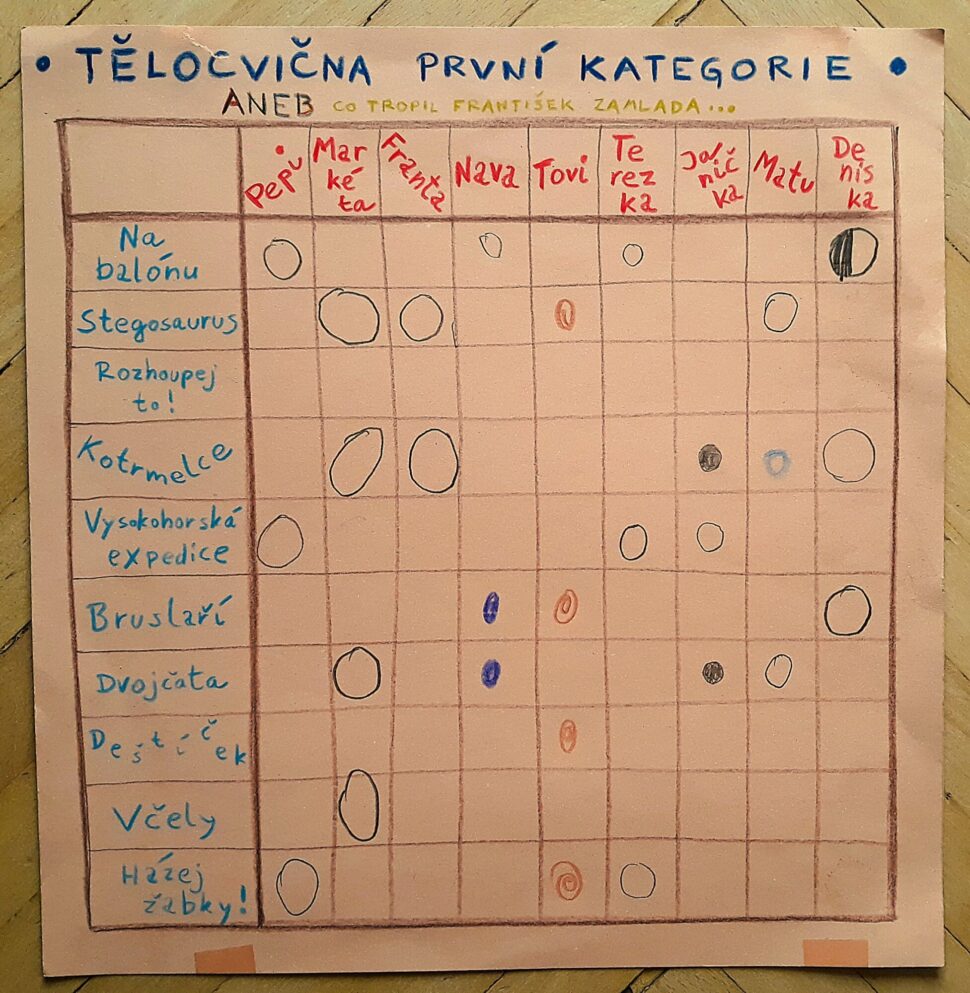 • TĚLOCVIČNA PRVNÍ KATEGORIE •
ANEB CO TROPIL FRANTIŠEK ZAMLADA...
Pepi
Mar
ké
ta
Franta
Nava
Tovi
Te
rez
ka
Ja
nič
ka
Matu
De
nis
ka
Na
balónu
Stegosaurus
Rozhoupej
to!
Kotrmelce
Vysokohorská
expedice
Bruslaří
Dvojčata
Deštíček
Včely
Házej
žabky!